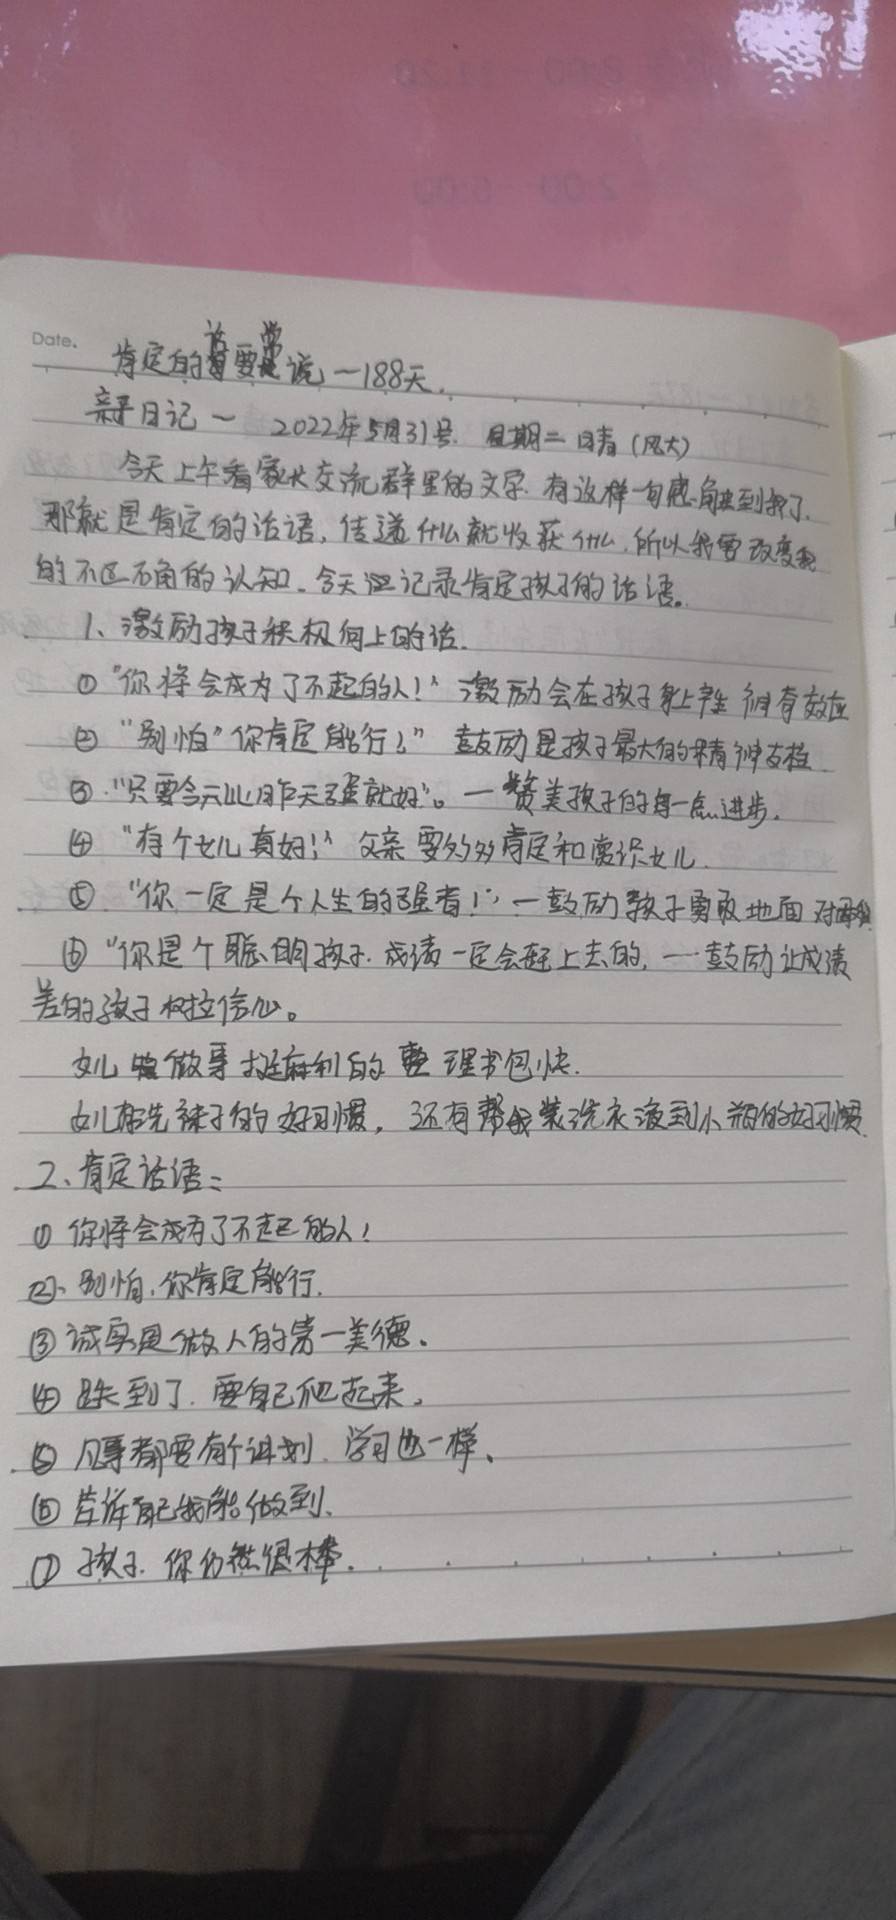 Date.
肯定的话要常说~188天.
亲子日记~ 2022年5月31号. 星期二 晴(风大)
今天上午看家长交流群里的文字.有这样一句感触到我了.
那就是肯定的话语,传递什么就收获什么.所以我要改变我
的不正确的认知.今天 记录肯定孩子的话语。
1、激励孩子积极向上的话.
①"你将会成为了不起的人!"激励会在孩子身上产生神奇效应
②"别怕"你肯定能行!"鼓励是孩子最大的精神支柱
③."只要今天比昨天强就好"。一赞美孩子的每一点进步.
④"有个女儿真好!"父亲要多多肯定和赏识女儿.
⑤."你一定是个人生的强者!",一鼓励孩子勇敢地面对
⑥"你是个聪明孩子.成绩一定会赶上去的,一鼓励让成绩
差的孩子树拉信心。
女儿 做事挺麻利的 整理书包快.
女儿有洗袜子的好习惯,还有帮我装洗衣液到小瓶的好习惯.
2、肯定话语:
① 你将会成为了不起的人!
②、别怕,你肯定能行.
③ 诚实是做人的第一美德.
④ 跌到了.要自己爬起来.
⑤ 凡事都要有个计划.学习也一样、
⑥ 告诉自己我能做到、
⑦ 孩子.你仍然很棒.